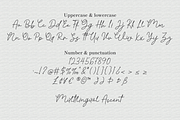 Uppercase & lowercase
Aa Bb Cc Dd Ee Ff Gg Hh Ii Jj Kk Ll Mm
Nn Oo Pp Qq Rr Ss Tt Uu Vv Ww Xx Yy Zz
Number & punctuation
1234567890
Multilingual Accent